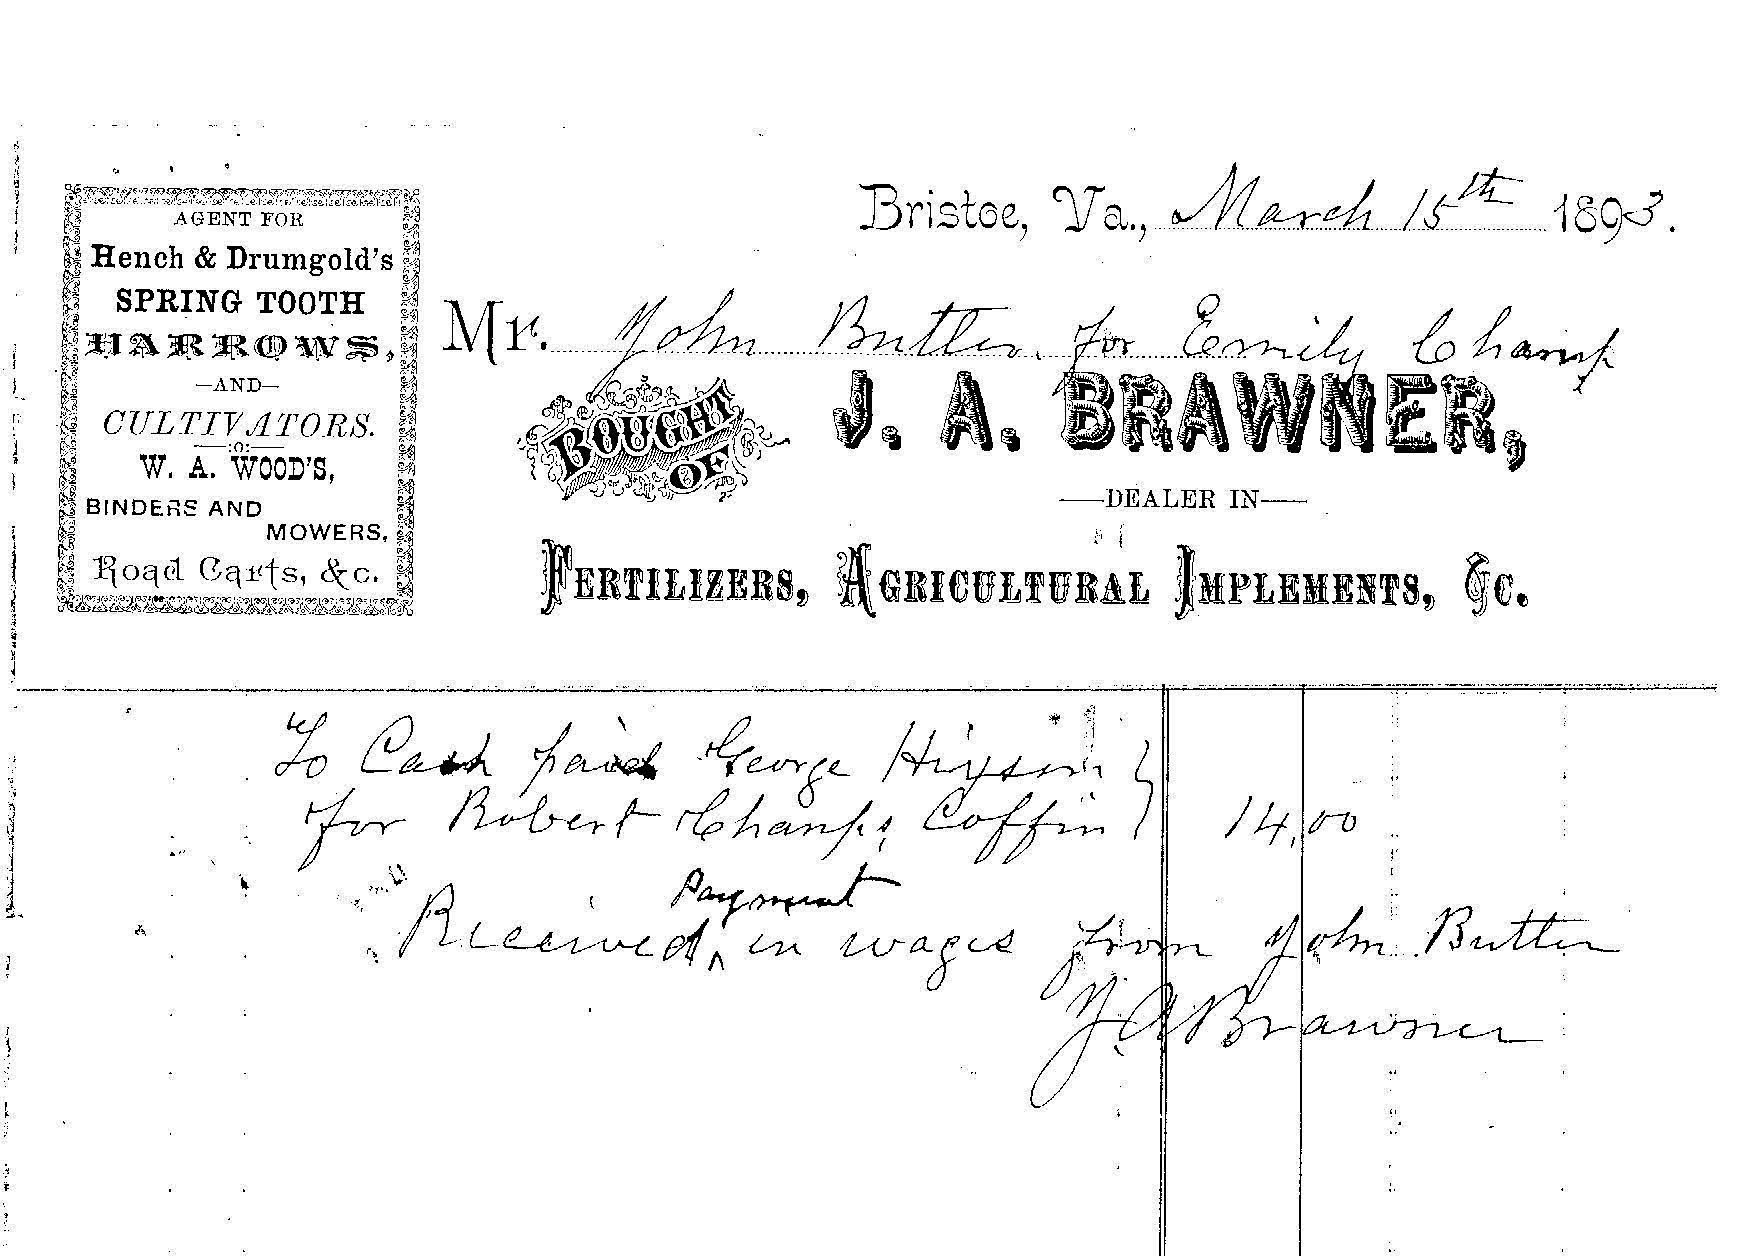 AGENT FOR
Hench & Drumgold's
SPRING TOOTH
HARROWS,
—AND—
CULTIVATORS.
—:o:—
W. A. WOOD'S,
BINDERS AND
MOWERS,
Road Carts, &c.
Bristoe, Va., March 15th 1893.
Mr. John Butler. for Emily Champ
BOUGHT OF J. A. BRAWNER,
—DEALER IN—
FERTILIZERS, AGRICULTURAL IMPLEMENTS, &C.
To Cash paid George Hixson }
for Robert Champs, Coffin } 14,00
Payment
Received, ^ in wages from John Butler
J A Brawner